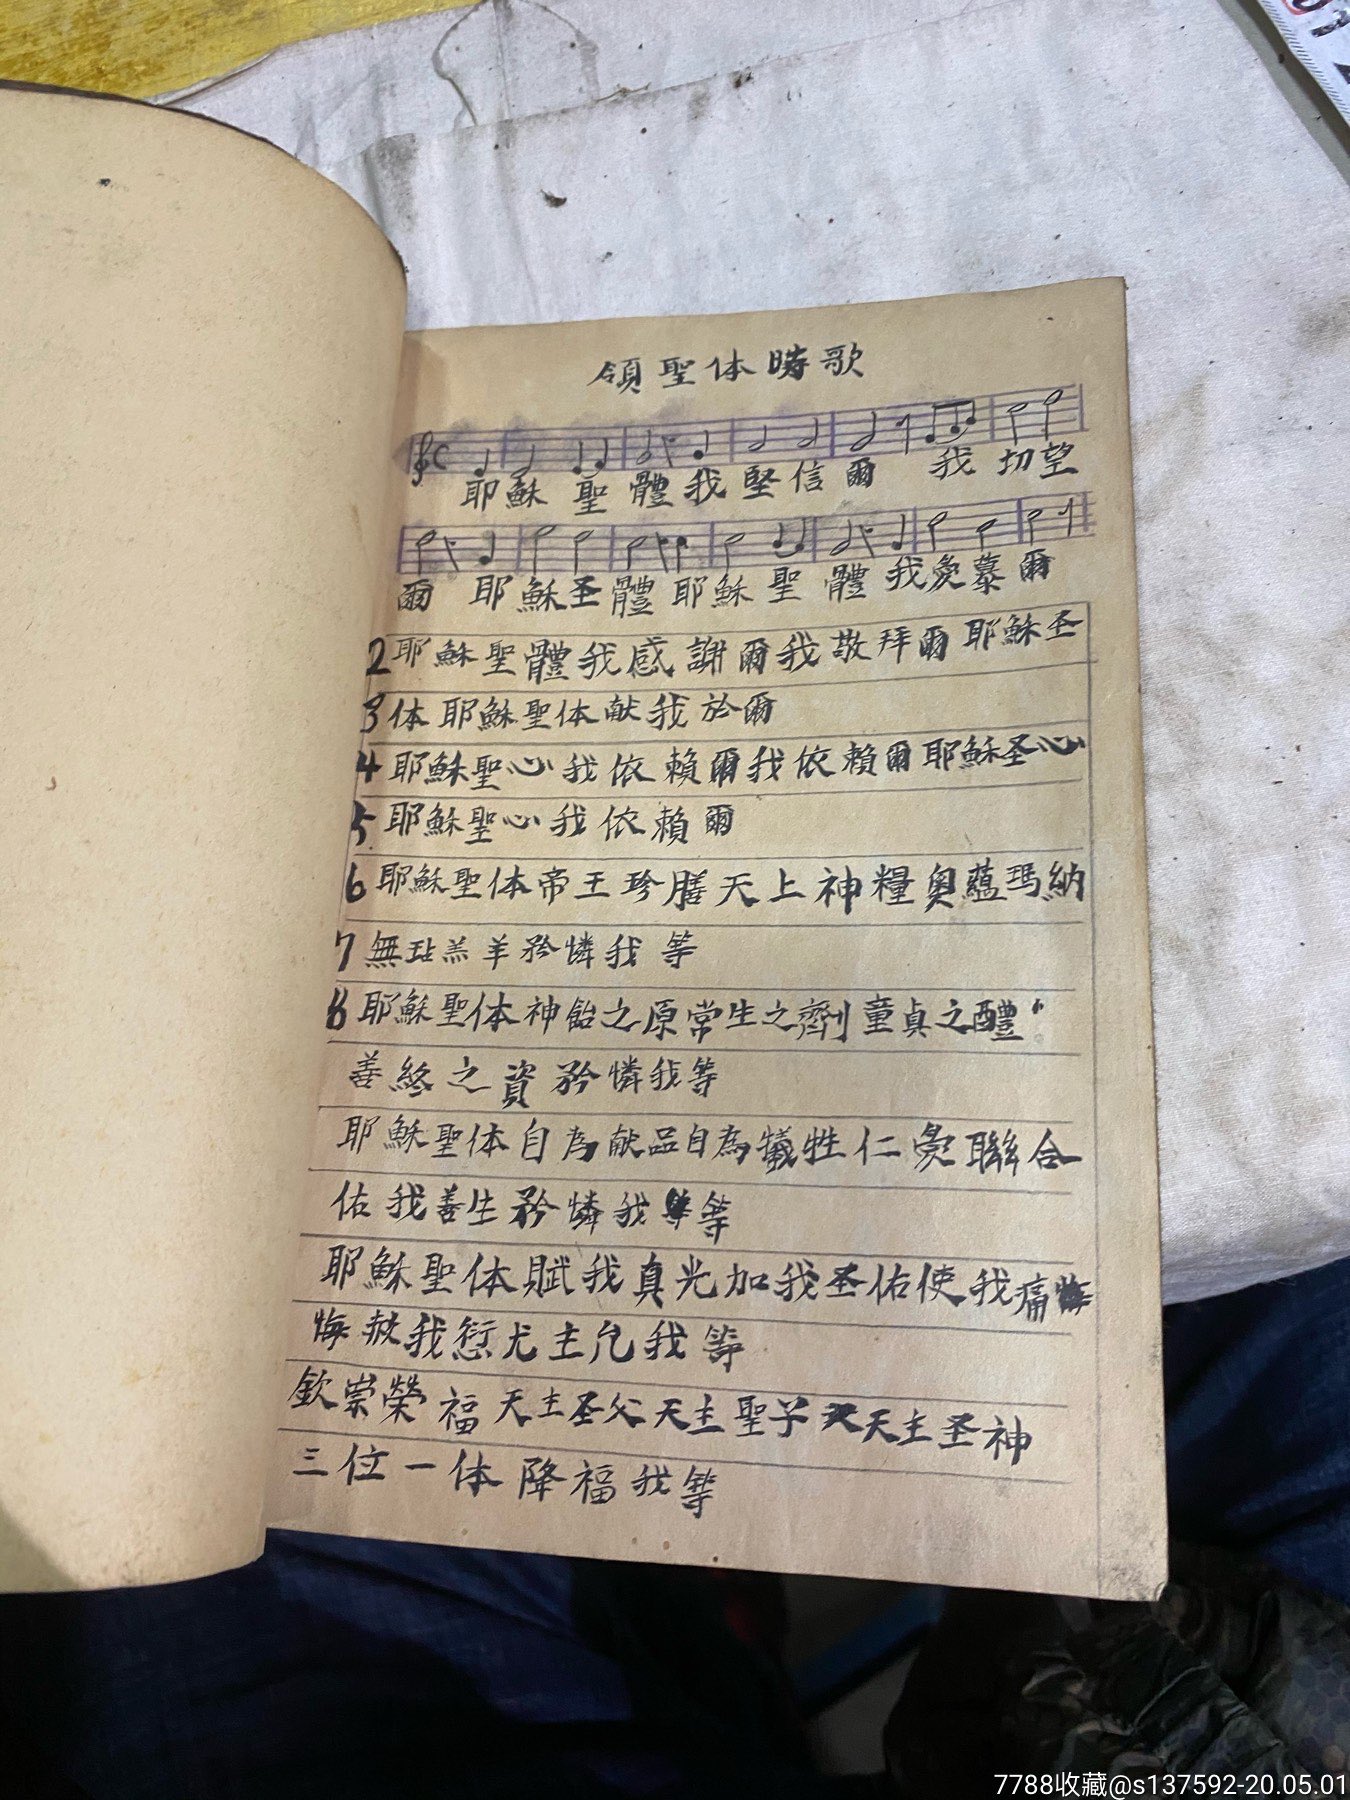 領聖体時歌
耶穌聖體我堅信爾 我切望
爾 耶穌圣體耶穌聖體我愛慕爾
2耶穌聖體我感謝爾我敬拜爾耶穌圣
3体耶穌聖体献我於爾
4耶穌聖心我依賴爾我依賴爾耶穌圣心
5耶穌聖心我依賴爾
6耶穌聖体帝王珍膳天上神糧奧蘊瑪納
7無玷羔羊矜憐我等
8耶穌聖体神飴之原常生之劑童貞之醴
善終之資矜憐我等
耶穌聖体自為献品自為犧牲仁愛聯合
佑我善生矜憐我等
耶穌聖体賦我真光加我圣佑使我痛
悔赦我愆尤主允我等
欽崇榮福天主圣父天主聖子天主圣神
三位一体降福我等
7788收藏@s137592-20.05.01